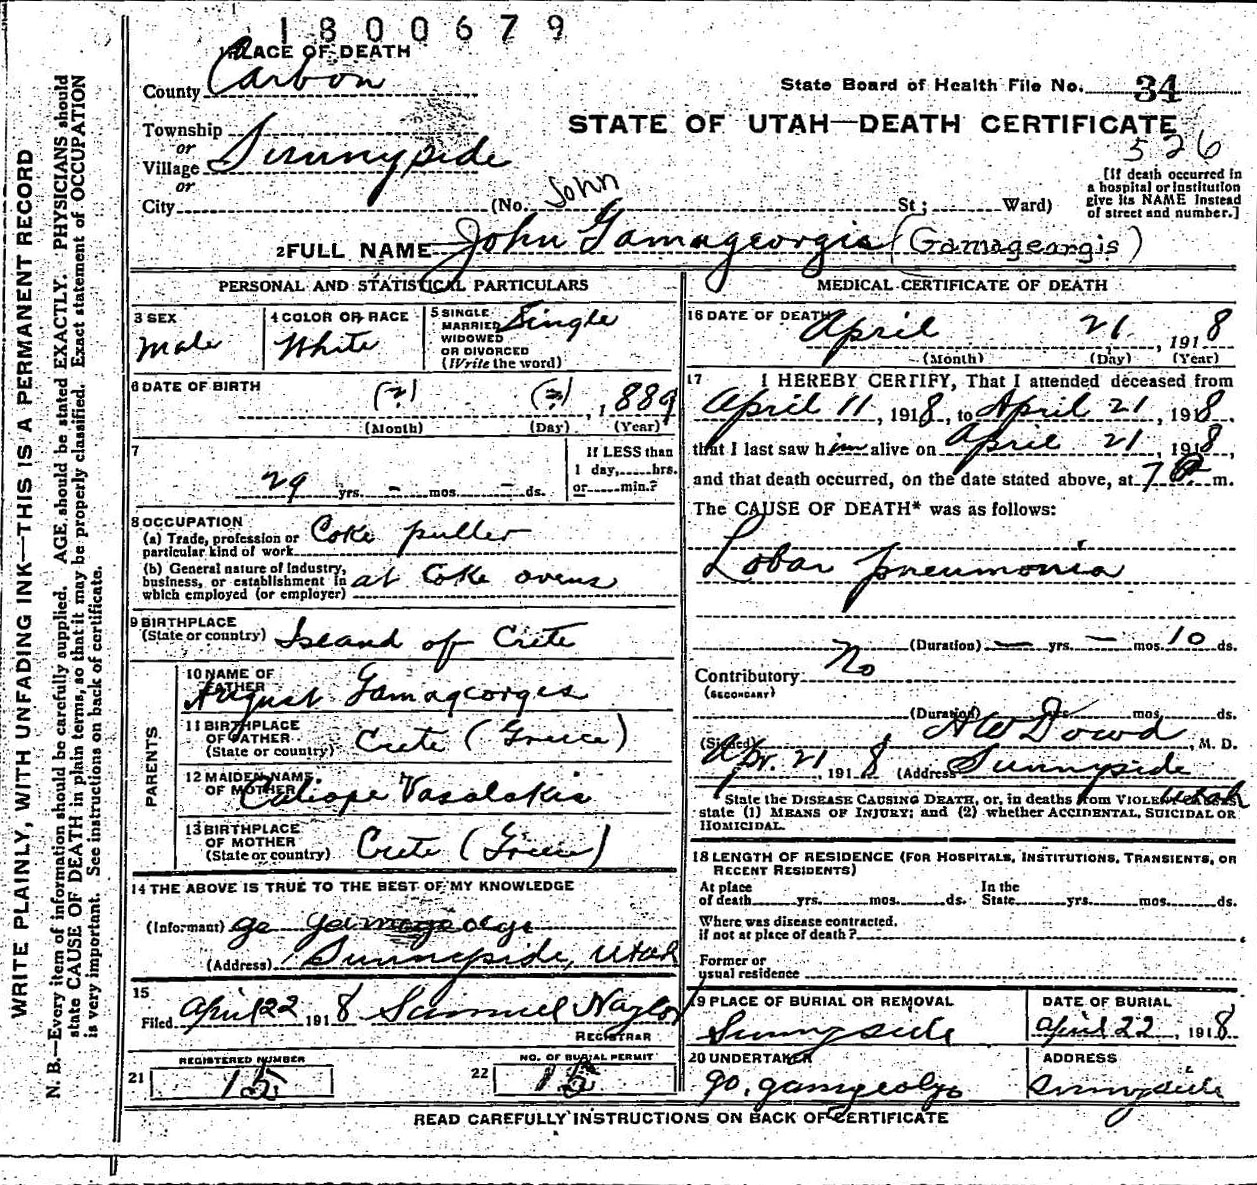 1800679
PLACE OF DEATH
County Carbon
State Board of Health File No. 34
STATE OF UTAH—DEATH CERTIFICATE
526
Township
or
Village Sunnyside
or
City (No. St; Ward)
John
[If death occurred in
a hospital or institution
give its NAME instead
of street and number.]
2 FULL NAME John Gamageorgis (Gamageorgis)
PERSONAL AND STATISTICAL PARTICULARS
3 SEX
Male
4 COLOR OR RACE
White
5 SINGLE
MARRIED
WIDOWED
OR DIVORCED
(Write the word)
Single
6 DATE OF BIRTH
(?) (?), 1889
(Month) (Day) (Year)
7
29 yrs. - mos. - ds.
If LESS than
1 day, hrs.
or min.?
8 OCCUPATION
(a) Trade, profession or
particular kind of work Coke puller
(b) General nature of industry,
business, or establishment in
which employed (or employer) at Coke ovens
9 BIRTHPLACE
(State or country) Island of Crete
PARENTS
10 NAME OF
FATHER
August Gamageorges
11 BIRTHPLACE
OF FATHER
(State or country) Crete (Greece)
12 MAIDEN NAME
OF MOTHER Caliope Vasalakis
13 BIRTHPLACE
OF MOTHER
(State or country) Crete (Greece)
14 THE ABOVE IS TRUE TO THE BEST OF MY KNOWLEDGE
(Informant)
(Address) Sunnyside, Utah
15
Filed April 22 1918 Samuel Naylor
REGISTRAR
REGISTERED NUMBER
21 15
NO. OF BURIAL PERMIT
22 15
MEDICAL CERTIFICATE OF DEATH
16 DATE OF DEATH
April 21, 1918
(Month) (Day) (Year)
17 I HEREBY CERTIFY, That I attended deceased from
April 11, 1918, to April 21, 1918
that I last saw him alive on April 21, 1918,
and that death occurred, on the date stated above, at 7 m.
The CAUSE OF DEATH* was as follows:
Lobar pneumonia
(Duration) — yrs. — mos. 10 ds.
Contributory No
(SECONDARY)
(Duration) yrs. mos. ds.
(Signed) H W Dowd, M. D.
Apr. 21, 1918 (Address) Sunnyside
Utah
*State the DISEASE CAUSING DEATH, or, in deaths from VIOLENT CAUSES,
state (1) MEANS OF INJURY; and (2) whether ACCIDENTAL, SUICIDAL OR
HOMICIDAL.
18 LENGTH OF RESIDENCE (FOR HOSPITALS, INSTITUTIONS, TRANSIENTS, OR
RECENT RESIDENTS)
At place
of death yrs. mos. ds.
In the
State yrs. mos. ds.
Where was disease contracted,
if not at place of death?
Former or
usual residence
19 PLACE OF BURIAL OR REMOVAL
Sunnyside
DATE OF BURIAL
April 22, 1918
20 UNDERTAKER
ADDRESS
Sunnyside
READ CAREFULLY INSTRUCTIONS ON BACK OF CERTIFICATE
WRITE PLAINLY, WITH UNFADING INK—THIS IS A PERMANENT RECORD
N. B.—Every item of information should be carefully supplied. AGE should be stated EXACTLY. PHYSICIANS should
state CAUSE OF DEATH in plain terms, so that it may be properly classified. Exact statement of OCCUPATION
is very important. See instructions on back of certificate.